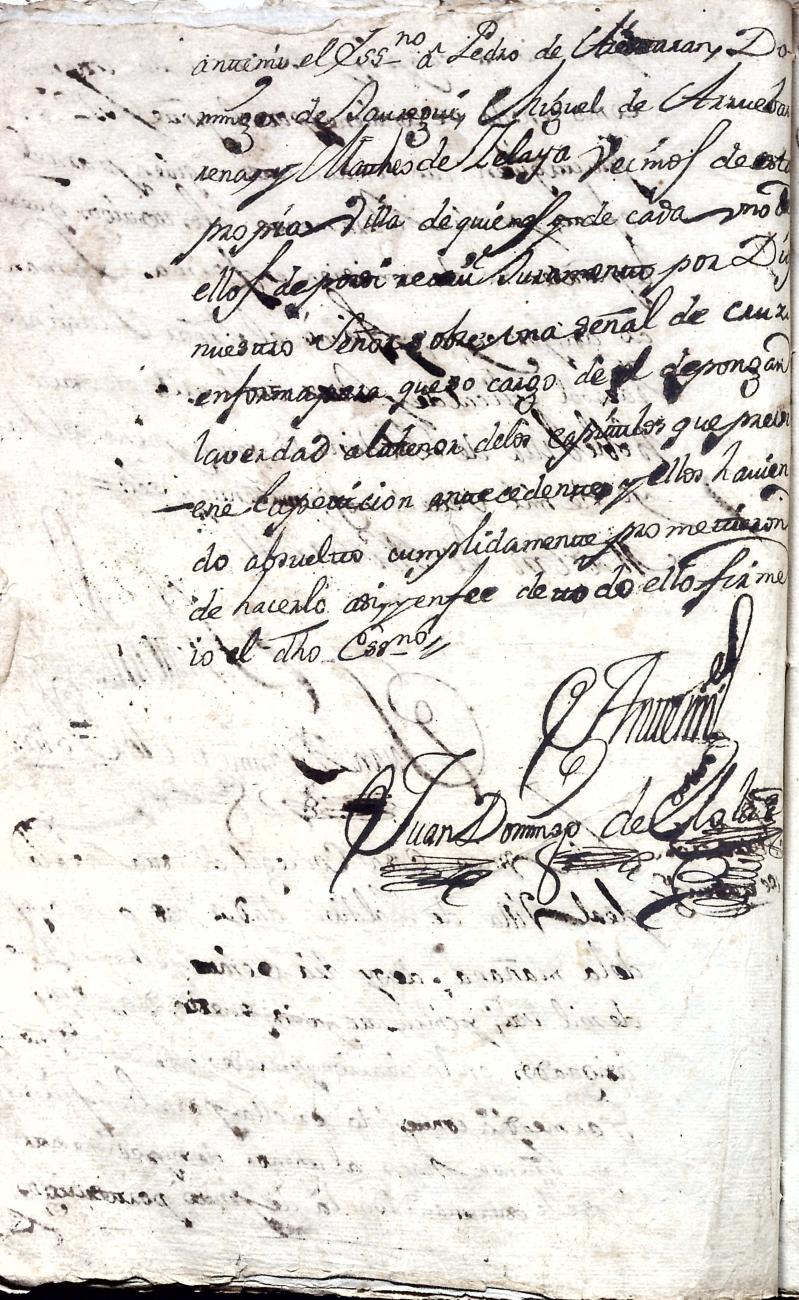 antemi el Essno a Pedro de Do-
mingo de Jauregui, Miguel de Arrueba
rena, y Matheo de Zelaya Vecinos de esta
propria Villa de quienes y de cada uno de
ellos de por si reciui Juramento por Dios
nuestro Señor sobre una señal de cruz
en forma para que so cargo de el depongan
la verdad al thenor delos Capitulos que previ
ene la peticion antecedente, y ellos havien
do absuelto cumplidamente prometieron
de hacerlo asi, y en fee de todo ello firme
io el dho Essno
Antemi
Juan Domingo de